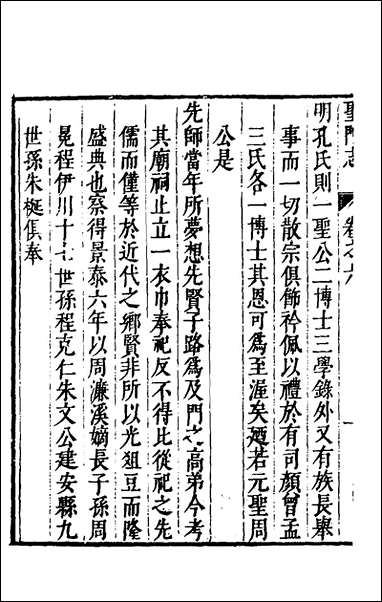 聖門志 卷之六 一
明孔氏則一聖公二博士三學錄外又有族長舉
事而一切散宗俱飾衿佩以禮於有司顏曾孟
三氏各一博士其恩可為至渥矣廼若元聖周
公是
先師當年所夢想先賢子路為及門之高弟今考
其廟祠止立一衣巾奉祀反不得比從祀之先
儒而僅等於近代之鄉賢非所以光俎豆而隆
盛典也察得景泰六年以周濂溪嫡長子孫周
冕程伊川十七世孫程克仁朱文公建安縣九
世孫朱梴俱奉